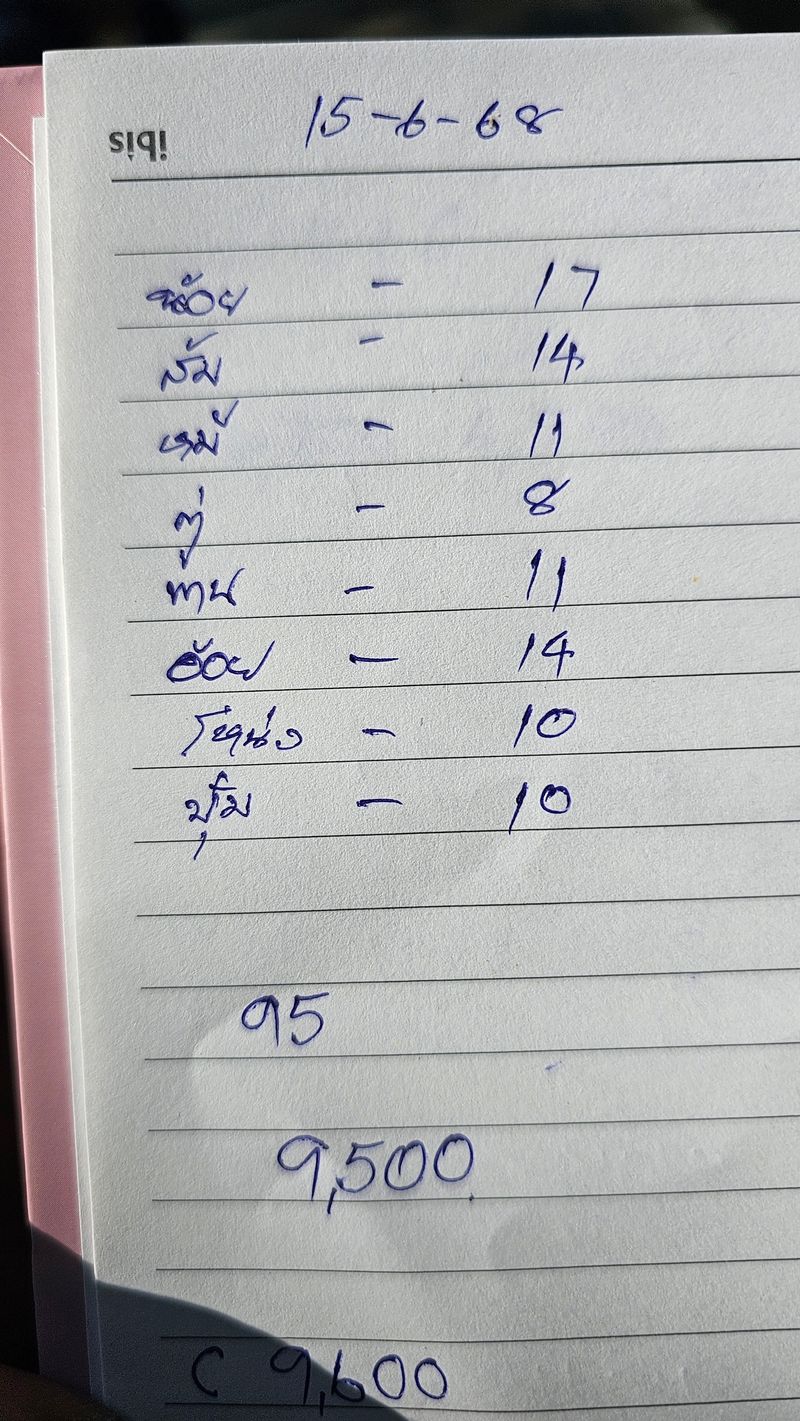 ibis
15-6-68
น้อย - 17
ส้ม - 14
หมี - 11
ตู่ - 8
ทาน - 11
อ้อย - 14
โหน่ง - 10
ปุ้ม - 10
95
9,500
C 9,600